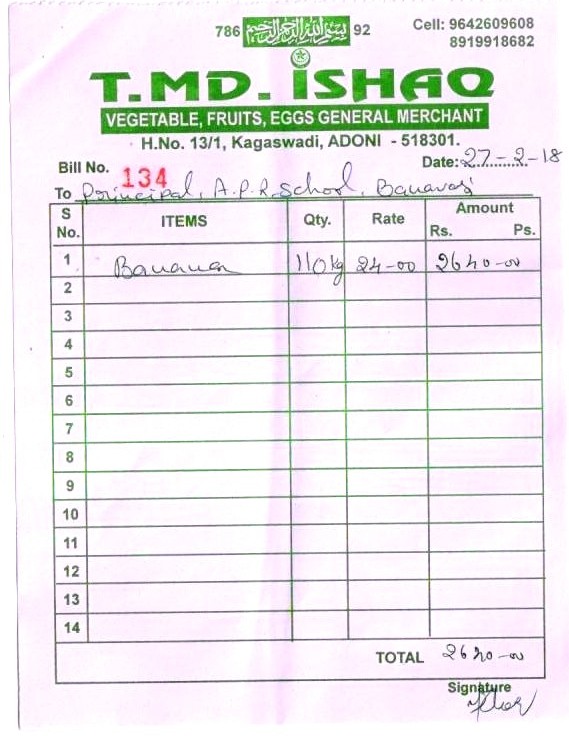 786 بسم الله الرحمن الرحيم 92
Cell: 9642609608
8919918682
T.MD. ISHAQ
VEGETABLE, FRUITS, EGGS GENERAL MERCHANT
H.No. 13/1, Kagaswadi, ADONI - 518301.
Bill No. 134 Date: 27-2-18
To Principal, A.P.R. School, Banavasi
S No. ITEMS Qty. Rate Amount
Rs. Ps.
1 Banana 110kg 24-00 2640-00
2
3
4
5
6
7
8
9
10
11
12
13
14
TOTAL 2640-00
Signature